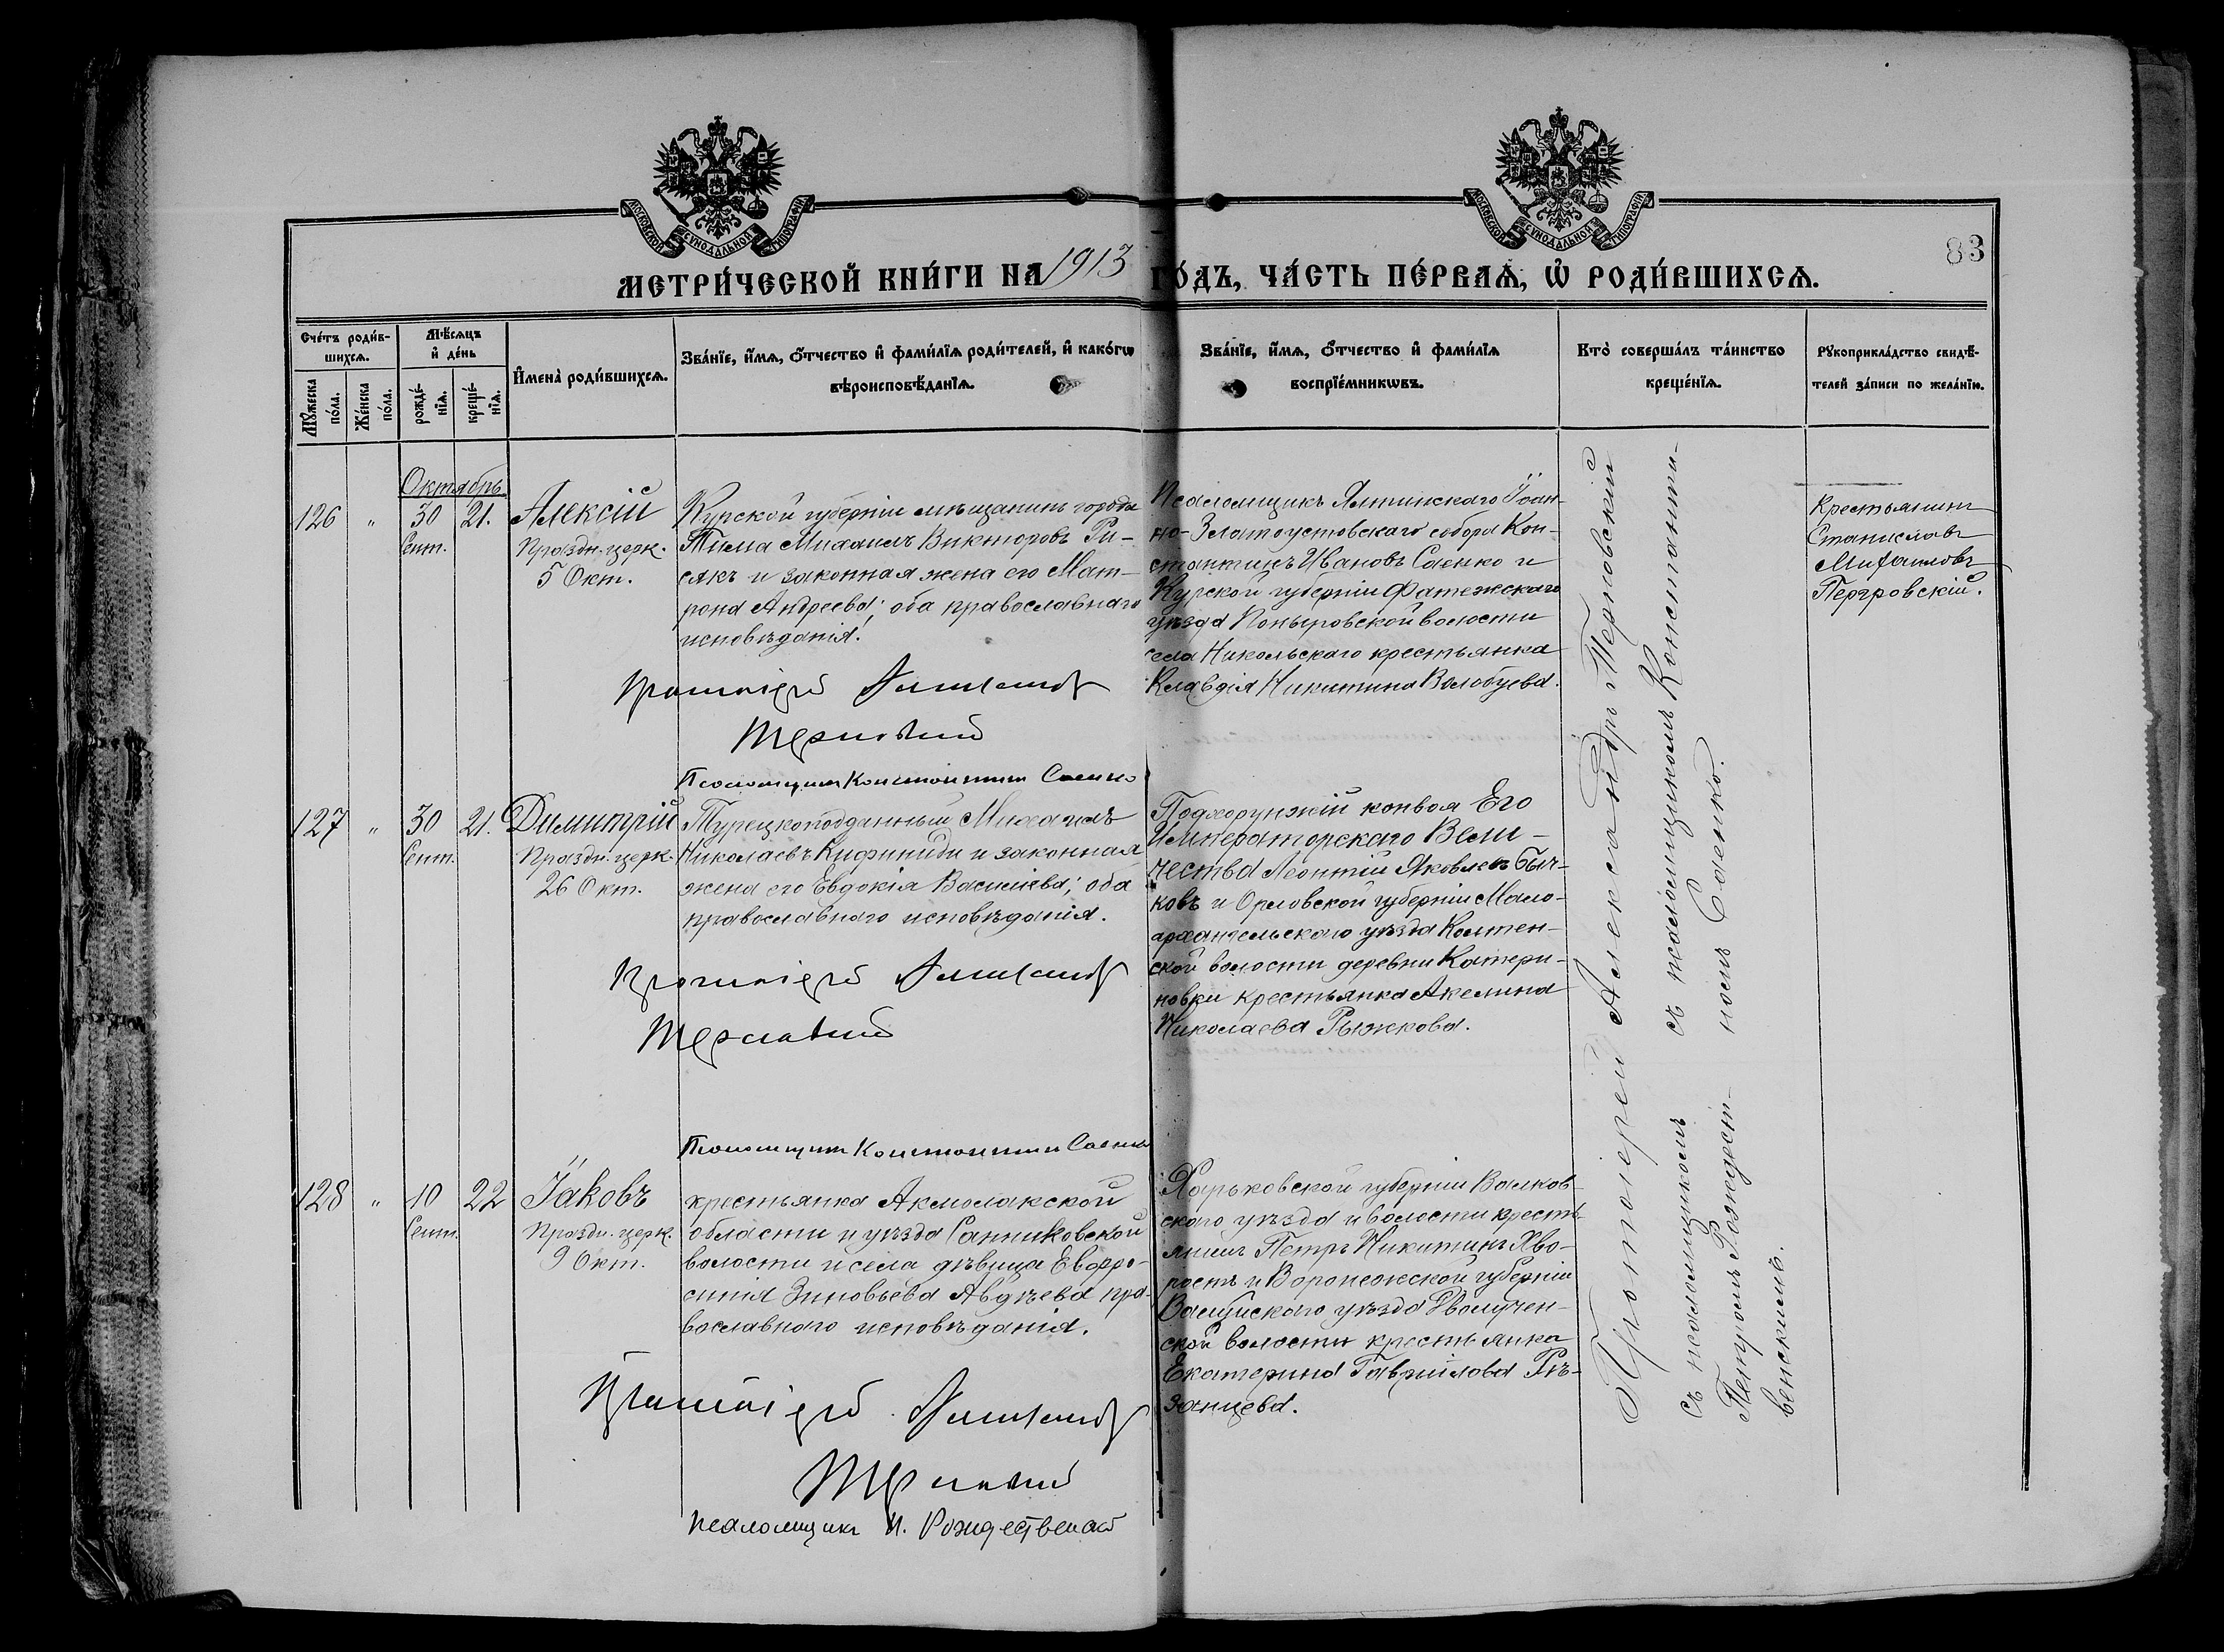 МОСКОВСКОЙ СѴНОДАЛЬНОЙ ТИПОГРАФІИ
МОСКОВСКОЙ СѴНОДАЛЬНОЙ ТИПОГРАФІИ
83
МЕТРИ́ЧЕСКОЙ КНИ́ГИ НА 1913 ГО́ДЪ, ЧА́СТЬ ПЕ́РВАѦ, Ѡ҆ РОДИ́ВШИХСѦ.
Сче́тъ роди́в-
шихсѧ.
Мꙋ́жеска
по́ла.
Же́нска
по́ла.
Мѣ́сѧцъ
и҆ де́нь
рожде́-
нїѧ.
креще́-
нїѧ.
И҆мена̀ роди́вшихсѧ.
Зва́нїе, и҆́мѧ, ѻ҆́тчество и҆ фами́лїѧ роди́телей, и҆ како́гѡ
вѣроисповѣ́данїѧ.
Зва́нїе, и҆́мѧ, ѻ҆́тчество и҆ фами́лїѧ
воспрїе́мникѡвъ.
Кто̀ соверша́лъ та́инство
креще́нїѧ.
Рꙋкоприкла́дство свидѣ́-
телей за́писи по жела́нїю.
Октябрь
126 " 30 21.
Сент.
Алексій
Праздн. церк.
5 Окт.
Курской губерніи мѣщанинъ города
Тима Михаилъ Викторовъ Ри-
сякъ и законная жена его Мат-
рона Андреева; оба православнаго
исповѣданія.
Протоіерей Александръ
Терновскій
Псаломщикъ Константинъ Саенко
Псаломщикъ Ялтинскаго Іоан-
но-Златоустовскаго собора Кон-
стантинъ Ивановъ Саенко и
Курской губерніи Фатежскаго
уѣзда Поныровской волости
села Никольскаго крестьянка
Клавдія Никитина Волобуева.
Крестьянинъ
Станиславъ
Михаиловъ
127 " 30 21.
Сент.
Димитрій
Праздн. церк.
26 Окт.
Турецкоподданный Михаилъ
Николаевъ Кифиниди и законная
жена его Евдокія Васильева; оба
православнаго исповѣданія.
Протоіерей Александръ
Терновскій
Псаломщикъ Константинъ Саенко
Подхорунжій конвоя Его
Императорскаго Вели-
чества Леонтій Яковлевъ Быч-
ковъ и Орловской губерніи Мало-
архангельскаго уѣзда
ской волости деревни Катери-
новки крестьянка Акелина
Николаева Рыжкова.
128 " 10 22
Сент.
Іаковъ
Праздн. церк.
9 Окт.
крестьянка Акмолакской
области и уѣзда Санниковской
волости и села дѣвица Евфро-
синія Зиновьева Авдѣева пра-
вославнаго исповѣданія.
Протоіерей Александръ
Терновскій
псаломщикъ П. Рождественскій
Харьковской губерніи Валков-
скаго уѣзда и волости кресть-
янинъ Петръ Никитинъ Хво-
ростъ и Воронежской губерніи
Валуйскаго уѣзда Двулучен-
ской волости крестьянка
Екатерина Гавриилова Рѣ-
занцева.
Протоіерей Александръ Терновскій
съ псаломщикомъ Константи-
номъ Саенко.
съ псаломщикомъ
Петромъ Рождест-
венскимъ.